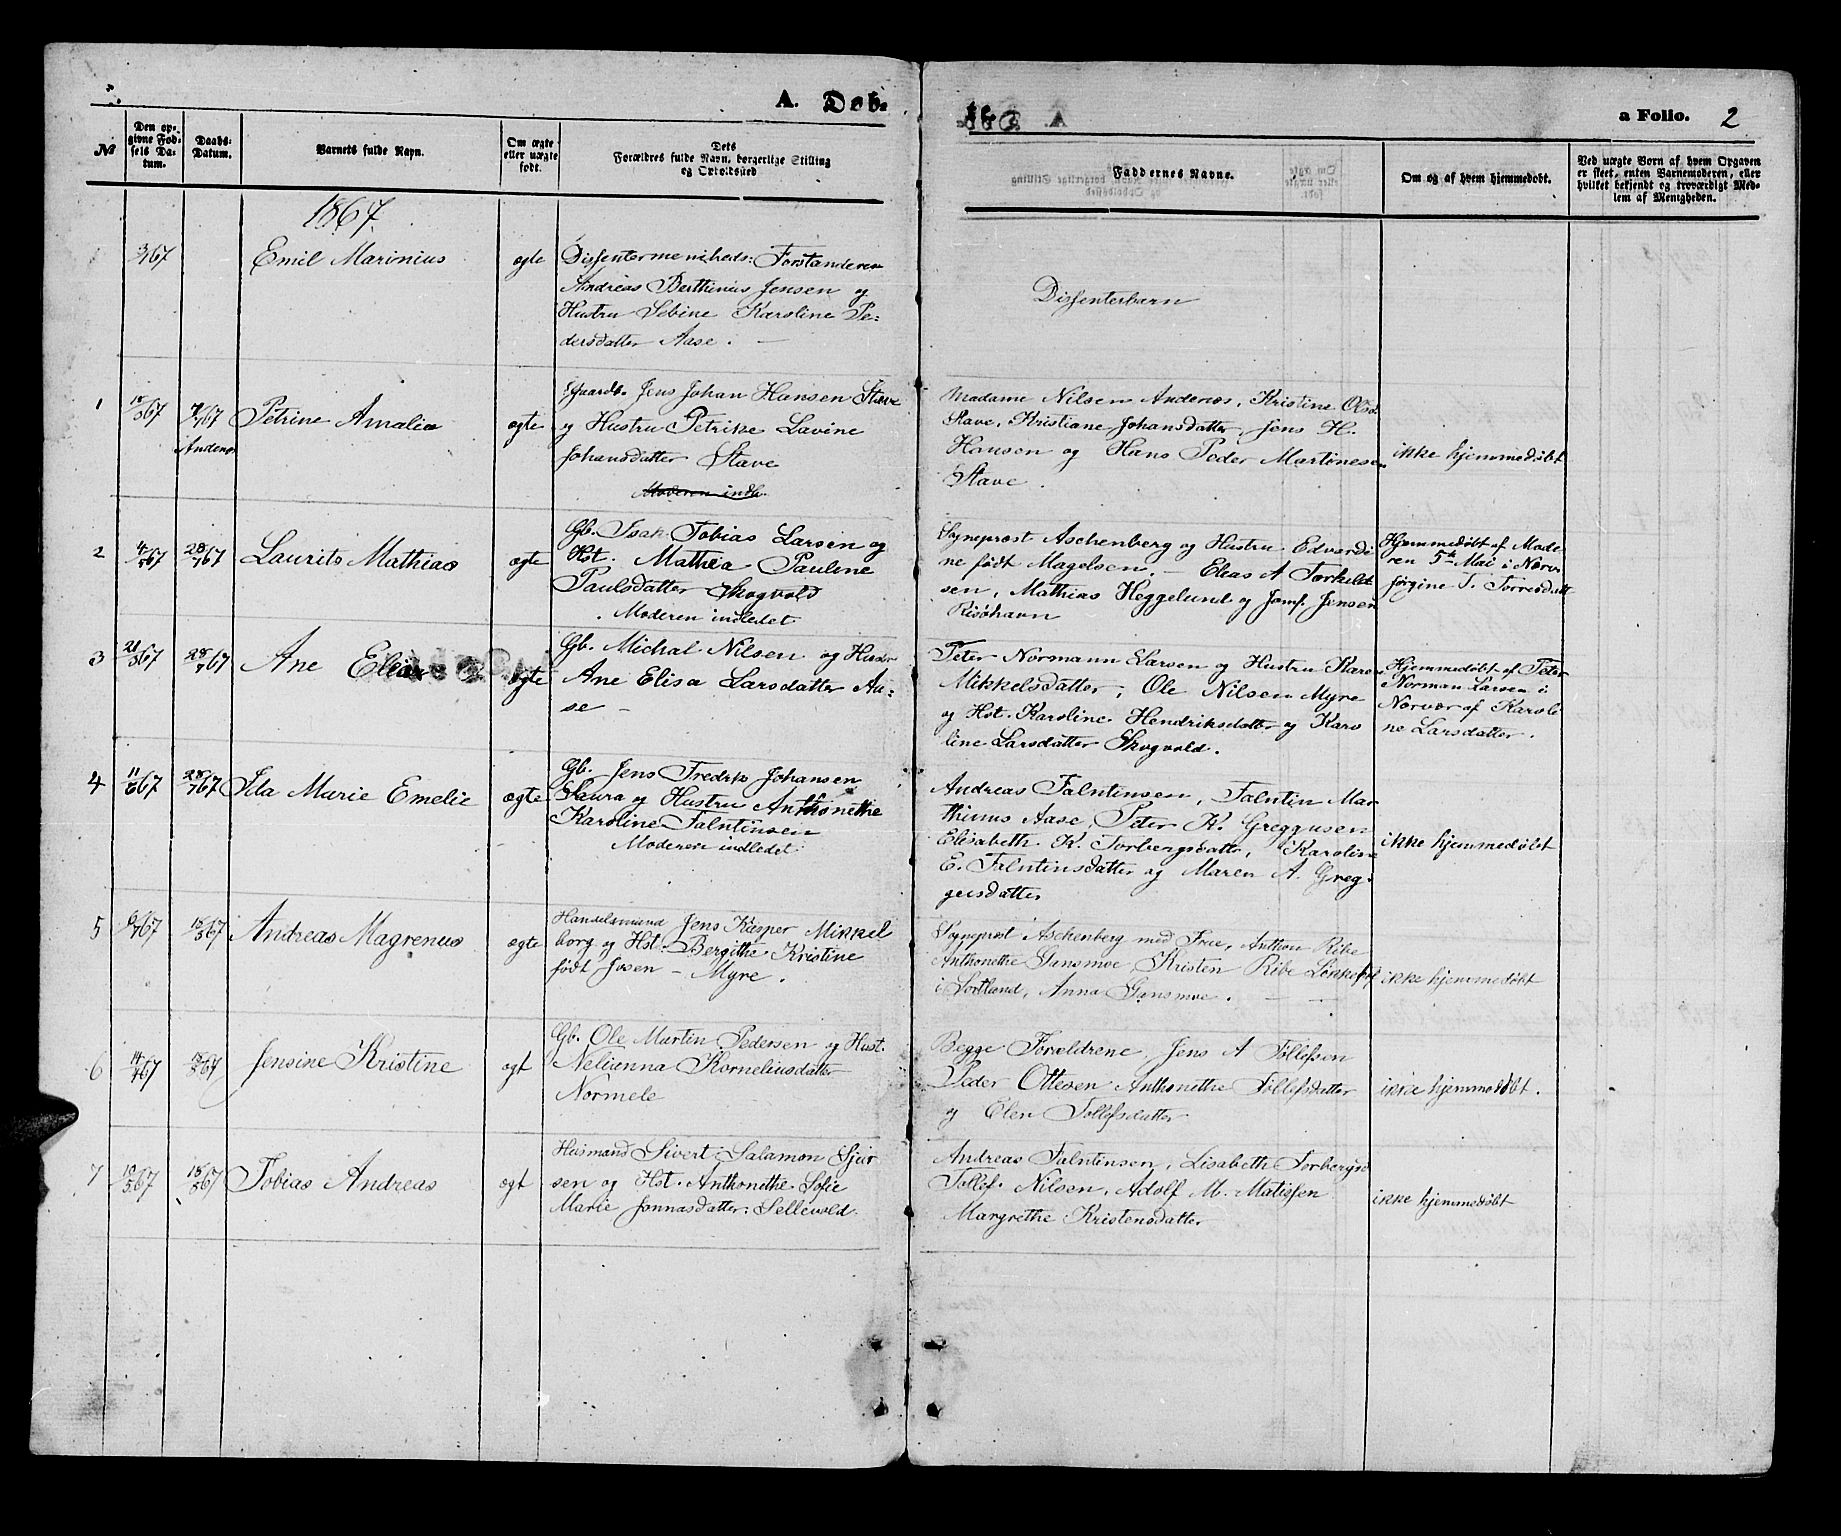 A. Døb-
te.
a Folio. 2
№
Den opgivne Fødsels Datum.
Daabs-Datum.
Barnets fulde Navn.
Om ægte eller uægte født.
Dets Forældres fulde Navn, borgerlige Stilling og Opholdssted
Faddernes Navne.
Om og af hvem hjemmedøbt.
Ved uægte Børn af hvem Opgaven er skeet, enten Barnemoderen, eller hvilket bekjendt og troværdigt Medlem af Menigheden.
1867.
Emil Marinius
ægte
Dissentermenigheds: Forstanderen
Andreas Berthinus Jensen og
Hustru Sebine Karoline Pe:
dersdatter Aase.
Dissenterbarn
1
Andenes
Petrine Amalia
ægte
Gaardb. Jens Johan Hansen Stave
og Hustru Petrike Lavine
Johansdatter Stave
Moderen indl.
Madame Nilsen Andenes, Kristine Olsd
Stave, Kristiane Johansdatter, Jens H.
Hansen og Hans Peder Martinesen
Stave.
ikke hjemmedøbt
2
28/767
Laurits Mathias
ægte
Gb. Isak Tobias Larsen og
Hst. Mathea Pauline
Paulsdatter Skogvold
. Moderen indledet
Sognepræst Aschenberg og Hustru Edvardi
ne født Magelsen, – Elias A Torkild
sen, Mathias Heggelund og Jomf. Jensen
Risøhavn
Hjemmedøbt af Mode
ren 5te Mai i Nærv.
Jørgine T. Torresdatt
3
28/767
Ane Elisa
ægte
Gb. Michal Nilsen og Hustr
Ane Elisa Larsdatter Aa-
se –
Peter Normann Larsen og Hustru Karen
Mikkelsdatter –, Ole Nilsen Myre
og Hst. Karoline Hendriksdatter og Karo
line Larsdatter Skogvold.
Hjemmedøbt af Peter
Norman Larsen i
Nærvær af Karoli
ne Larsdatter.
4
11/667
28/767
Ida Marie Emelie
ægte
Gb. Jens Fredrik Johansen
Saura og Hustru Anthonethe
Karoline Falntinsen
Moderen indledet
Andreas Falntinsen, Falntin Mar
thinus Aase, Peter K. Greggusen
Elisabeth K. Torbergsdatter, Karoline
E. Falntinsdatter og Maren A. Greg-
gersdatter
ikke hjemmedøbt
5
18/867
Andreas Magrenus
ægte
Handelsmand Jens Kasper Mikkel
borg og Hst. Bergithe Kristine
født Jusen – Myre.
Sognepræst Aschenberg med Frue, Anthon Ribe
Anthonethe Gansmoe, Kristen Ribe
i Sortland, Anna Gansmoe.
ikke hjemmedøbt
6
18/867
Jensine Kristine
ægt
Gb. Ole Martin Pedersen og Hust.
Nelianna Korneliusdatter
Normele
Begge Forældrene, Jens A Tollefsen
Peder Ottesen Anthonethe Tollefsdatter
og Elen Tollefsdatter
ikke hjemmedøbt.
7
18/867
Tobias Andreas
ægt
Husmand Sivert Salamon Sjur
sen og Hst. Anthonethe Sofie
Marie Jonnasdatter: Sellevold.
Andreas Falntinsen, Lisabeth Torbergsd
Tollef Nilsen, Adolf M. Matisen
Margrethe Kristensdatter
ikke hjemmedøbt